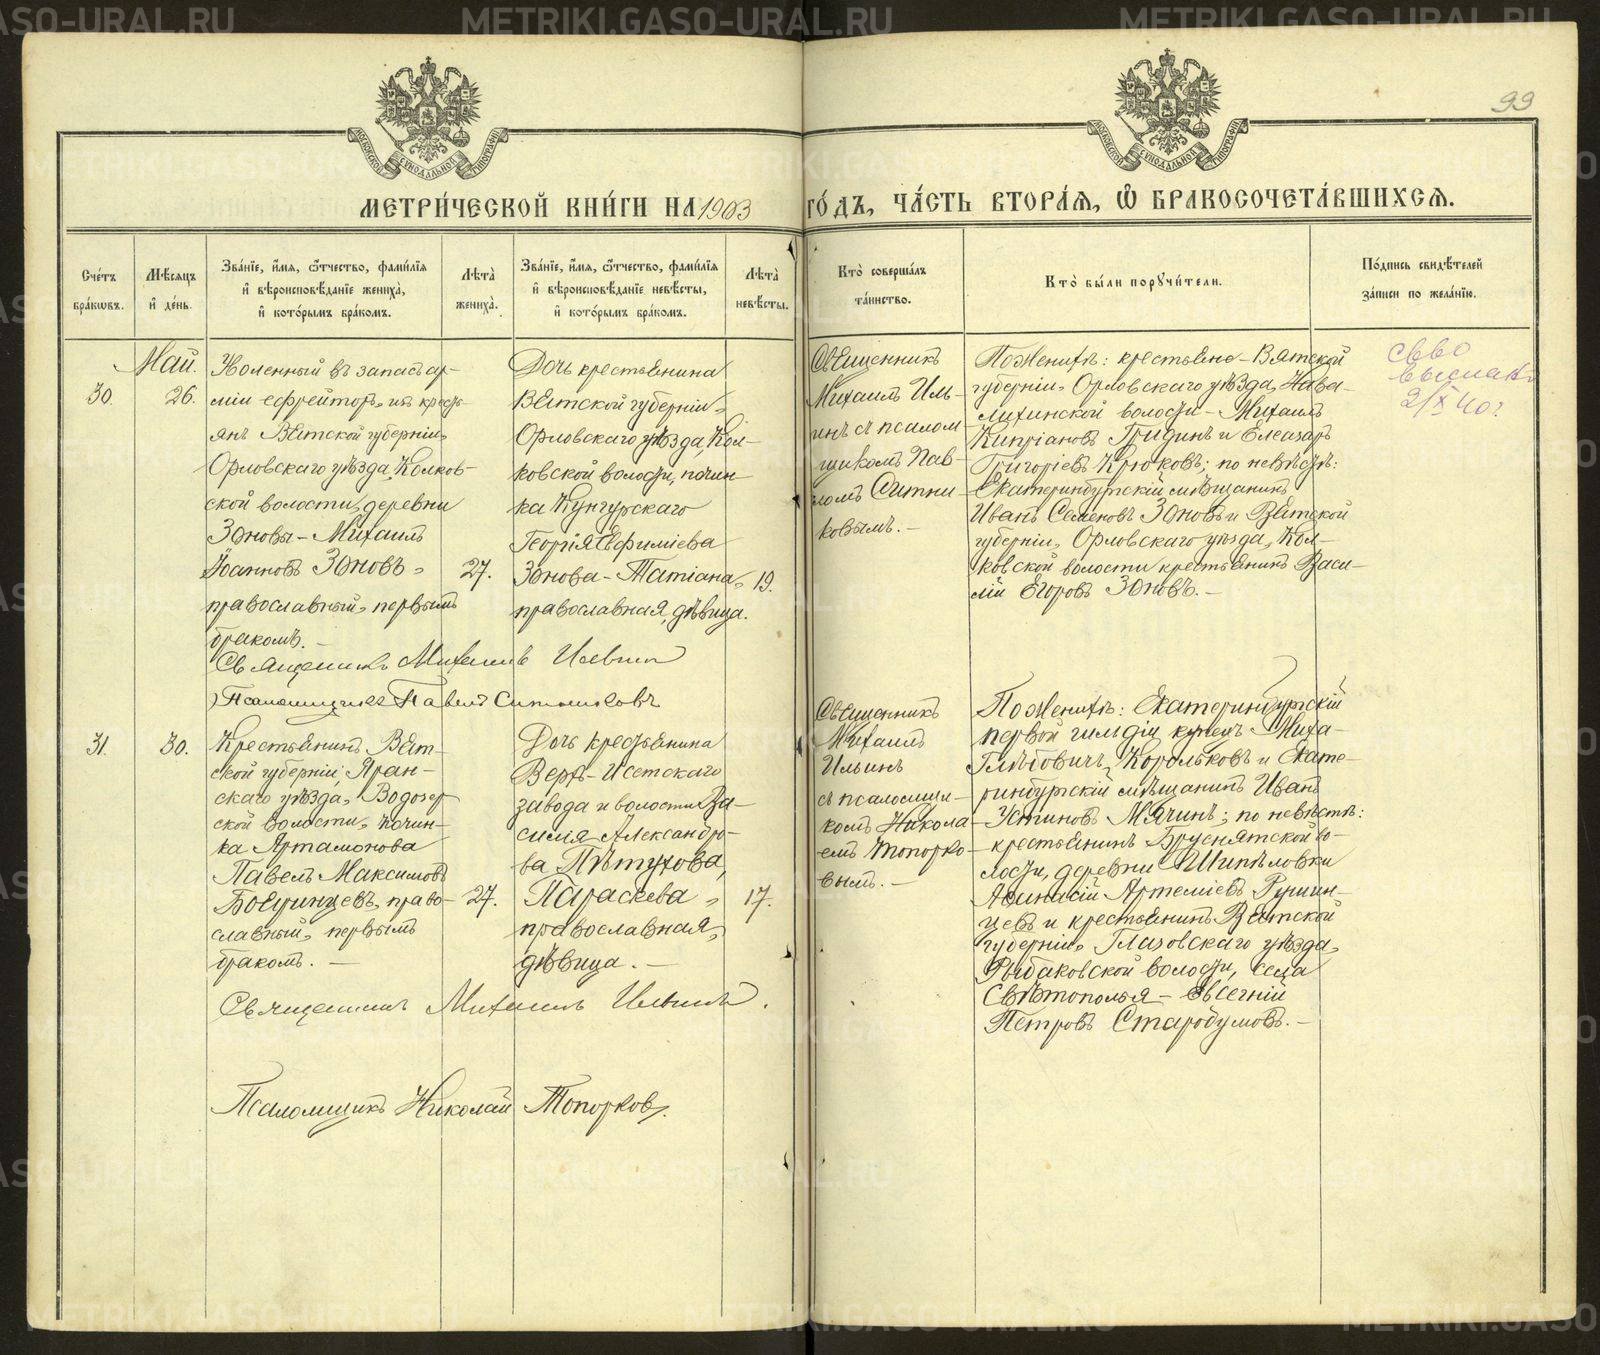 99
МОСКОВСКОЙ СѴНОДАЛЬНОЙ ТИПОГРАФІИ
МОСКОВСКОЙ СѴНОДАЛЬНОЙ ТИПОГРАФІИ
МЕТРИ́ЧЕСКОЙ КНИ́ГИ НА 1903 ГО́ДЪ, ЧА́СТЬ ВТОРА́Я, Ѡ҆ БРАКОСОЧЕТА́ВШИХСЯ.
Сче́тъ бра́кѡвъ.
Мѣ́сяцъ и҆ де́нь.
Зва́нїе, и҆́мя, ѻ҆́тчество, фами́лїя и҆ вѣроисповѣ́данїе жениха̀, и҆ кото́рымъ бра́комъ.
Лѣта̀ жениха̀.
Зва́нїе, и҆́мя, ѻ҆́тчество, фами́лїя и҆ вѣроисповѣ́данїе невѣ́сты, и҆ кото́рымъ бра́комъ.
Лѣта̀ невѣ́сты.
Кто̀ соверша́лъ та́инство.
Кто̀ бы́ли пору́чители.
По́дпись свидѣ́телей за́писи по жела́нїю.
Май.
30.
26.
Уволенный въ запасъ ар-
міи ефрейторъ изъ кресть-
янъ Вятской губерніи,
Орловскаго уѣзда, Колков-
ской волости, деревни
Зоновы - Михаилъ
Іоанновъ Зоновъ,
православный, первымъ
бракомъ. -
27.
Дочь крестьянина
Вятской губерніи,
Орловскаго уѣзда, Кол-
ковской волости, почин-
ка Кунгурскаго
Георгія Евфиміева
Зонова - Татіана,
православная, дѣвица.
19.
Священникъ
Михаилъ Иль-
инъ съ псалом-
щикомъ Пав-
ломъ Ситни-
ковымъ. -
По женихѣ: крестьяне - Вятской
губерніи, Орловскаго уѣзда,
волости - Михаилъ
Кипріановъ Гридинъ и Елеазаръ
Григоріевъ Крюковъ; по невѣстѣ:
Екатеринбургскій мѣщанинъ
Иванъ Семеновъ Зоновъ и Вятской
губерніи, Орловскаго уѣзда, Кол-
ковской волости крестьянинъ Васи-
лій Егоровъ Зоновъ. -
св-во
выслано
2/X 40 г.
Священникъ Михаилъ Ильинъ
Псаломщикъ Павелъ Ситниковъ
31.
30.
Крестьянинъ Вят-
ской губерніи, Яран-
скаго уѣзда, Водозер
ской волости, почин-
ка Артамонова
Павелъ Максимовъ
право-
славный, первымъ
бракомъ. -
27.
Дочь крестьянина
Верх-Исетскаго
завода и волости Ва-
силія Александро-
ва Пѣтухова,
Параскева,
православная,
дѣвица. -
17.
Священникъ
Михаилъ
Ильинъ
съ псаломщи-
комъ Никола-
емъ Топорко-
вымъ. -
По женихѣ: Екатеринбургскій
первой гильдіи купецъ Миха-
Глѣбовичъ Корольковъ и Екате-
ринбургскій мѣщанинъ Иванъ
Устиновъ Мячинъ; по невѣстѣ:
крестьянинъ Бруснятской во-
лости, деревни Шипѣловки
Аѳанасій Артеміевъ
и крестьянинъ Вятской
губерніи, Глазовскаго уѣзда,
Рыбаковской волости, села
Свѣтополья - Евгеній
Петровъ Старобумовъ. -
Священникъ Михаилъ Ильинъ.
Псаломщикъ Николай Топорковъ.
METRIKI.GASO-URAL.RU